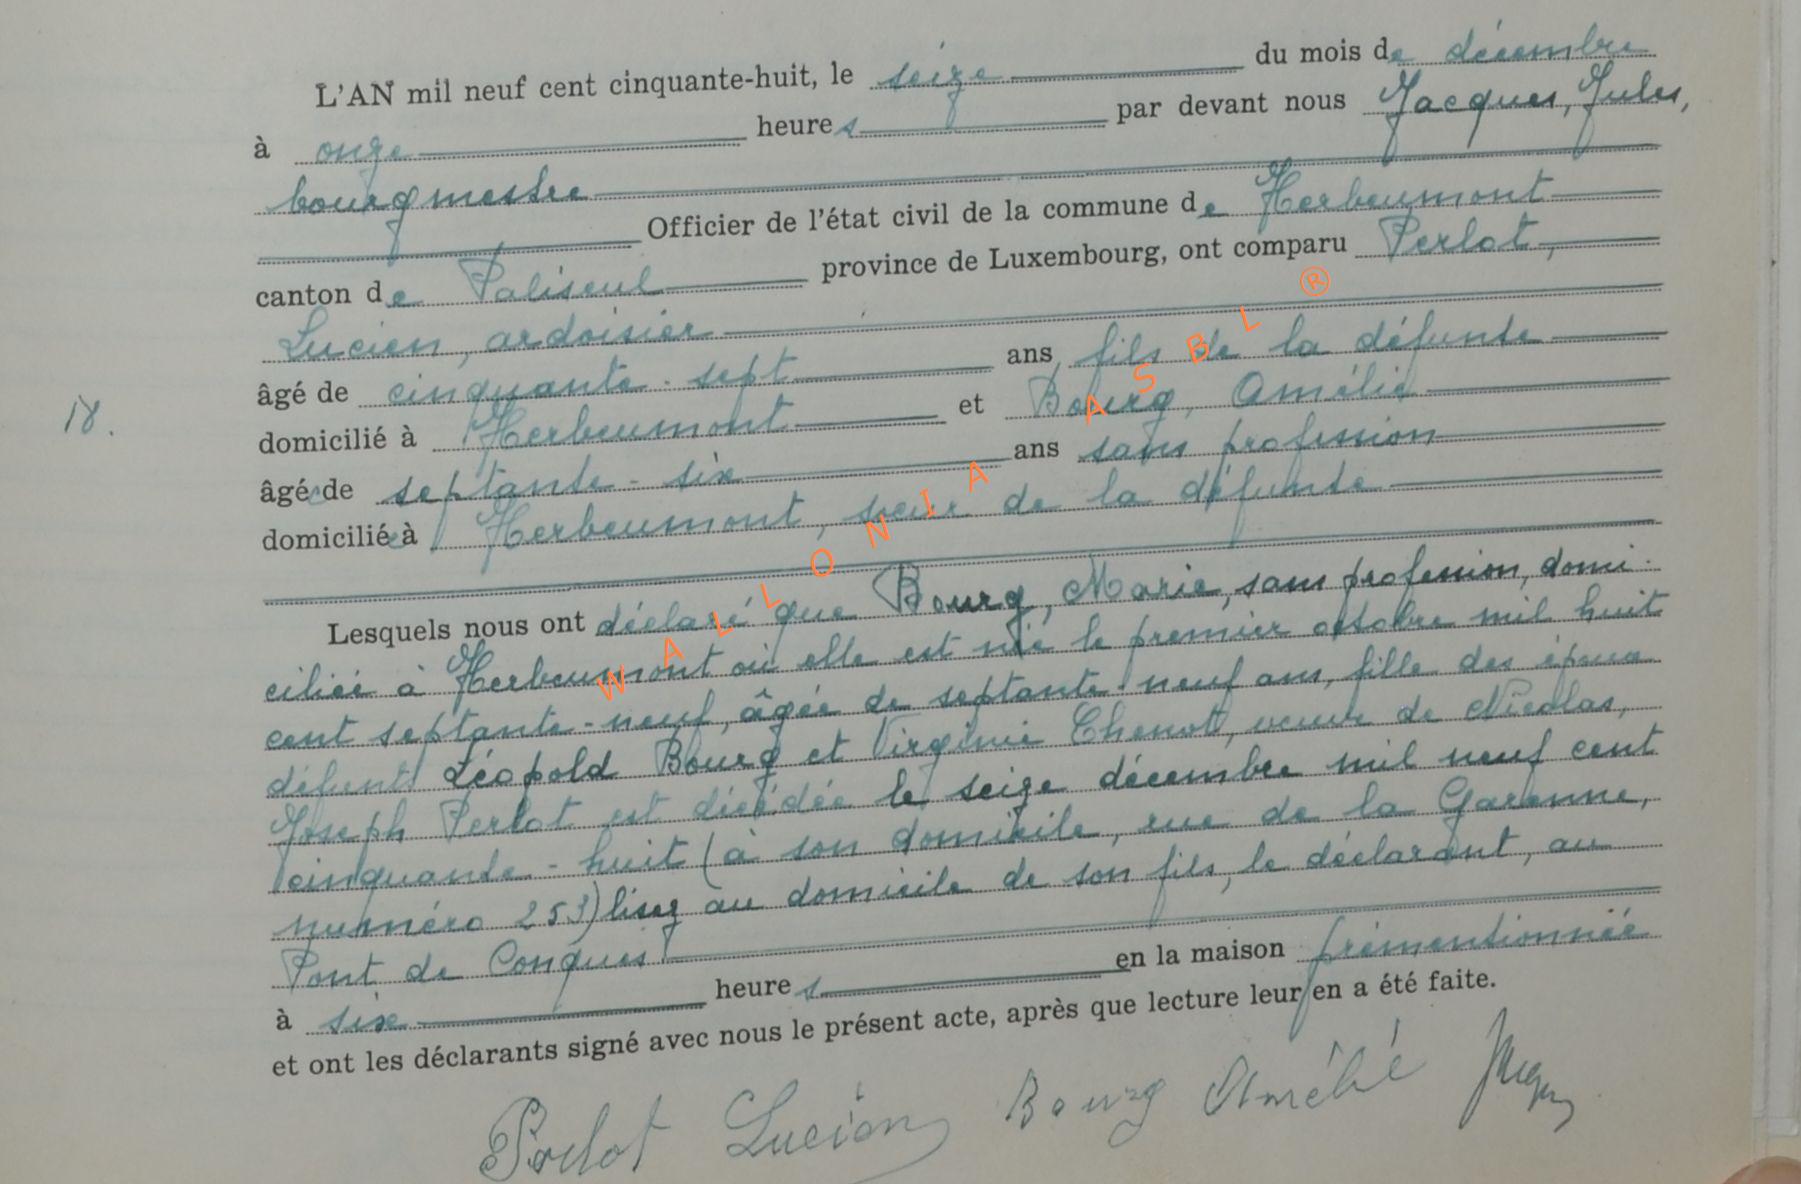 L'AN mil neuf cent cinquante-huit, le seize du mois de décembre
à onze heures par devant nous Jacques, Jules,
bourgmestre
Officier de l'état civil de la commune de Herbeumont
canton de Paliseul province de Luxembourg, ont comparu Perlot,
Lucien, ardoisier
âgé de cinquante-sept ans fils de la défunte
domicilié à Herbeumont et Bourg, Amélie
18.
âgée de septante-six ans sans profession
domiciliée à Herbeumont, sœur de la défunte
Lesquels nous ont déclaré que Bourg, Marie, sans profession, domi-
ciliée à Herbeumont où elle est née le premier octobre mil huit
cent septante-neuf, âgée de septante-neuf ans, fille des époux
défunts Léopold Bourg et Virginie Chenot, veuve de Nicolas,
Joseph Perlot est décédée le seize décembre mil neuf cent
cinquante-huit (à son domicile, rue de la Garenne,
numéro 253) lisez au domicile de son fils, le déclarant, au
Pont de Conques
à six heures en la maison prémentionnée
et ont les déclarants signé avec nous le présent acte, après que lecture leur en a été faite.
Perlot Lucien Bourg Amélie
WALLONIA ASBL ®